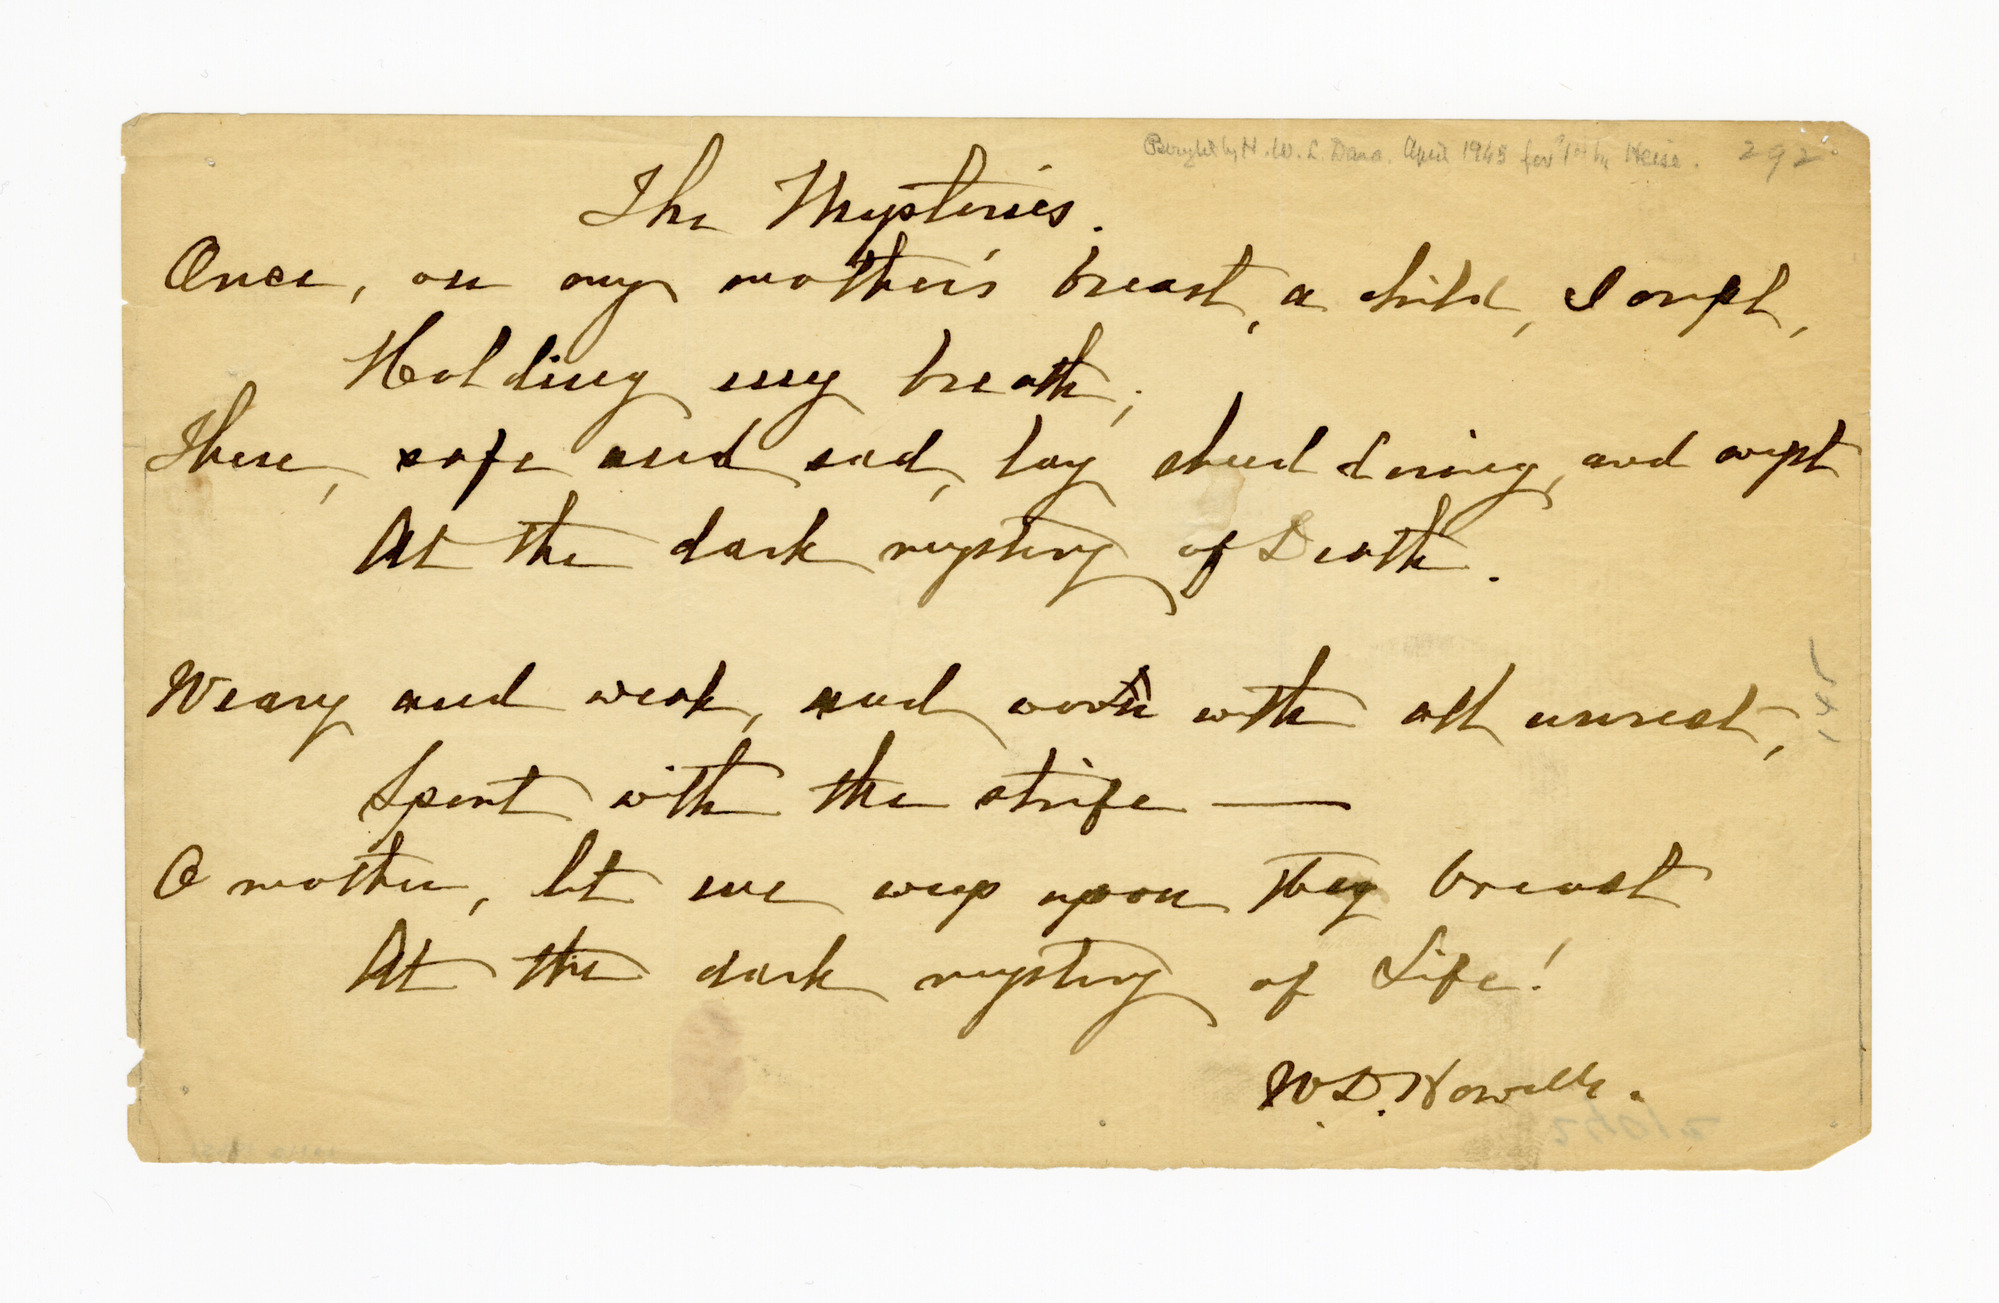 Bought by H. W. L. Dana. April 1945 for Heise. 292
The Mysteries.
Once, on my mother's breast, a child, I crept,
Holding my breath;
There, safe and sad, lay shuddering, and wept
At the dark mystery of Death.
Weary and weak, and worn with all unrest,
Spent with the strife —
O mother, let me weep upon thy breast
At the dark mystery of Life!
W. D. Howells.